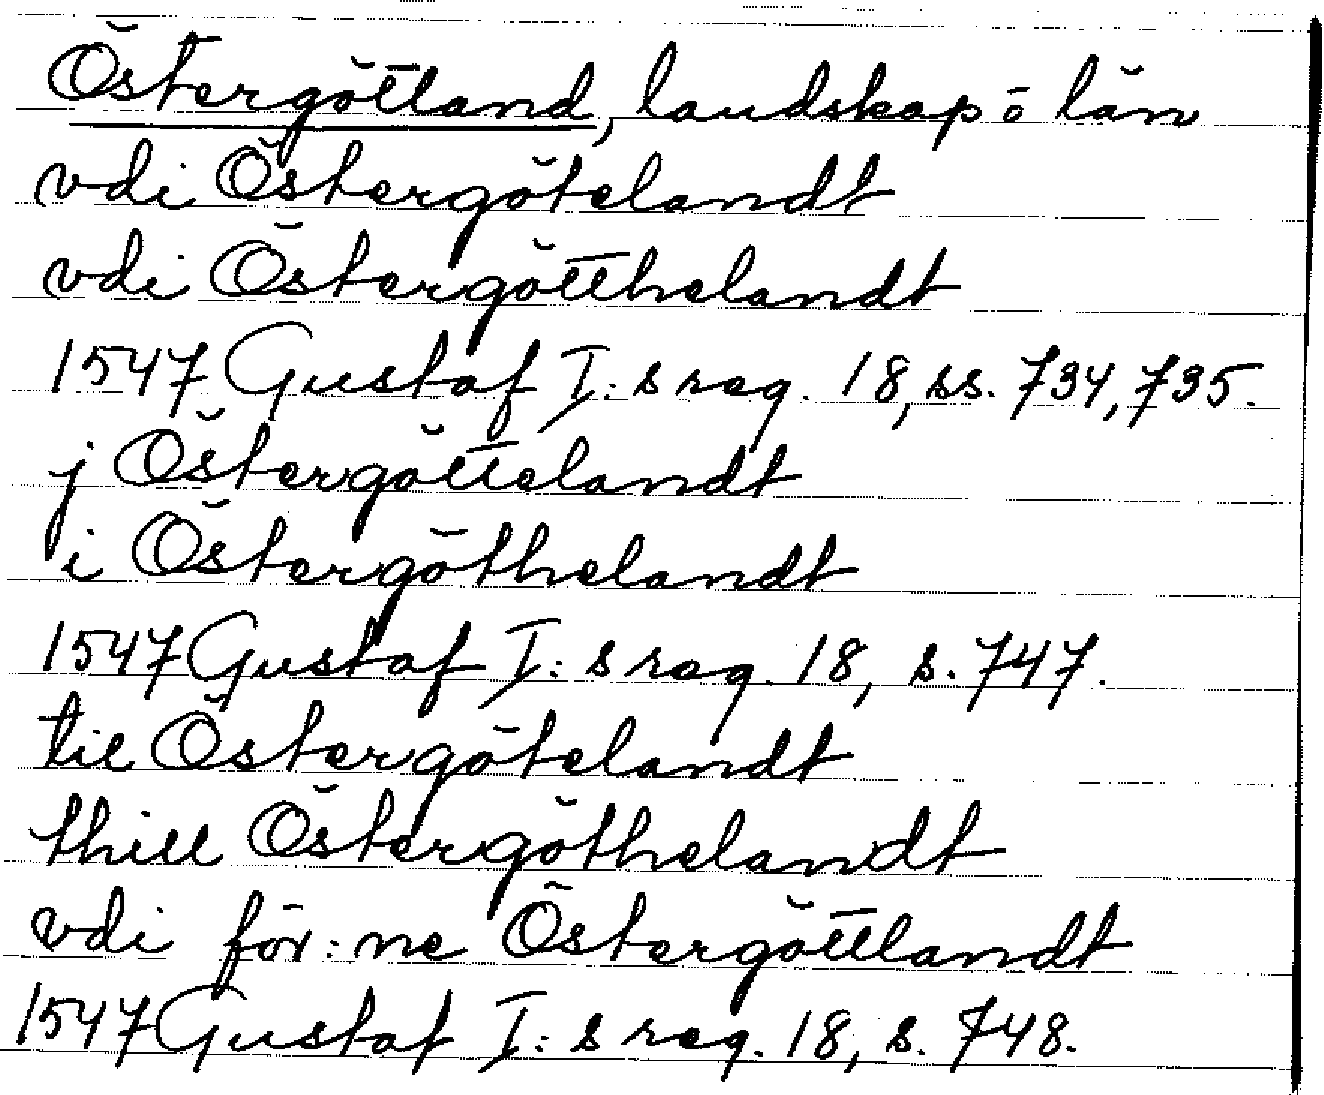 Östergötland, landskap o län
vdi Östergötelandt
vdi Östergötthelandt
1547 Gustaf I:s reg. 18, ss. 734, 735.
j Östergöttelandt
i Östergöthelandt
1547 Gustaf I:s reg. 18, s. 747.
til Östergötelandt
thill Östergöthelandt
vdi för:ne Östergöttlandt
1547 Gustaf I:s reg. 18, s. 748.